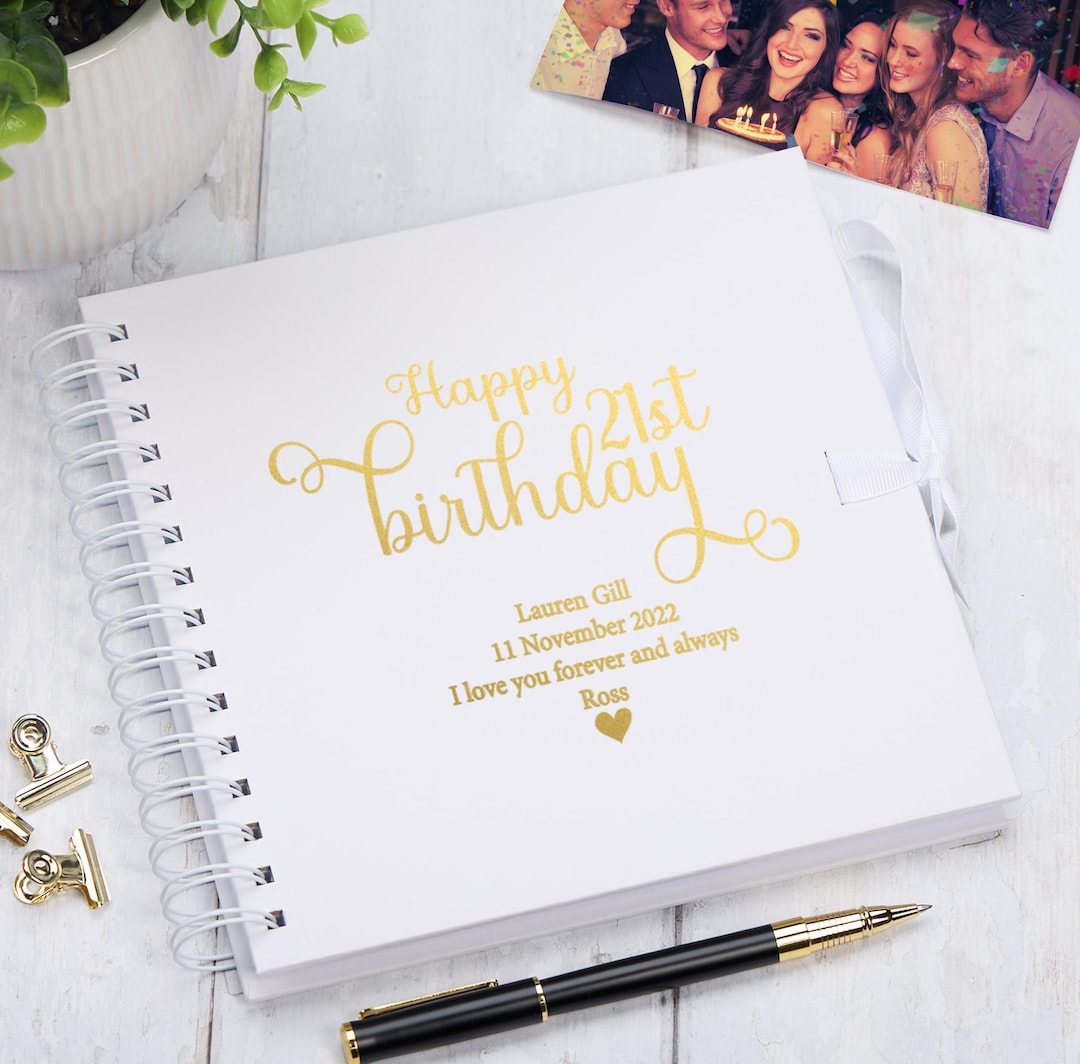 Happy
21st
birthday
Lauren Gill
11 November 2022
I love you forever and always
Ross